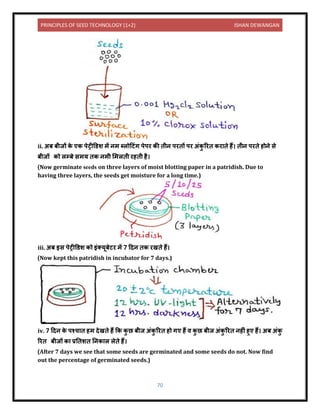 PRINCIPLES OF SEED TECHNOLOGY (1+2) ISHAN DEWANGAN
Seeds
0.001 Hg2Cl2 Solution
OR
10% clorox Solution
Surface
Sterilization
ii. अब बीजों के एक पेट्रीडिश में नम ब्लोटिंग पेपर की तीन परतों पर अंकुरित कराते हैं। तीन परते होने से
बीजों को लम्बे समय तक नमी मिलती रहती है।
(Now germinate seeds on three layers of moist blotting paper in a patridish. Due to
having three layers, the seeds get moisture for a long time.)
5/10/25
Seeds
Blotting
Paper
(3 layers)
Petridish
iii. अब इस पेट्रीडिश को इंक्यूबेटर में 7 दिन तक रखते हैं।
(Now kept this patridish in incubator for 7 days.)
Incubation chamber
20±2°c temperature
12 hrs. UV-light
12 hrs. darkness
Alternatively
for 7 days.
iv. 7 दिन के पश्चात हम देखते हैं कि कुछ बीज अंकुरित हो गए हैं व कुछ बीज अंकुरित नहीं हुए हैं। अब अंकु
रित बीजों का प्रतिशत निकाल लेते हैं।
(After 7 days we see that some seeds are germinated and some seeds do not. Now find
out the percentage of germinated seeds.)
70